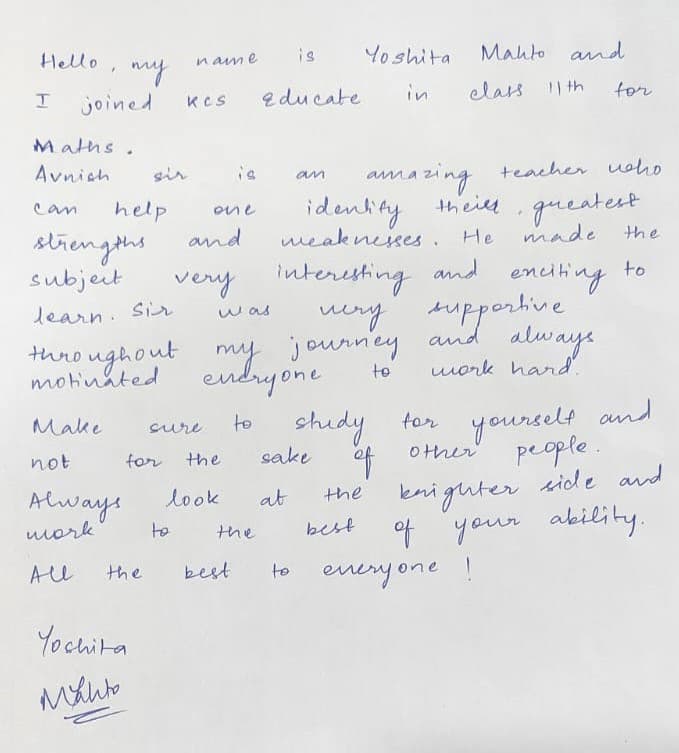 Hello, my name is Yoshita Mahto and
I joined KCS Educate in class 11th for
Maths.
Avnish sir is an amazing teacher who
can help one identify their, greatest
strengths and weaknesses. He made the
subject very interesting and exciting to
learn. Sir was very supportive
throughout my journey and always
motivated everyone to work hard.
Make sure to study for yourself and
not for the sake of other people.
Always look at the brighter side and
work to the best of your ability.
All the best to everyone !
Yoshita
Mahto